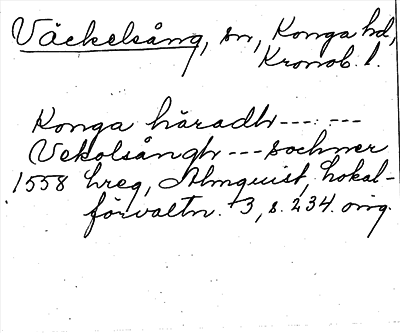 Väckelsång, sn, Konga hd,
Kronob. l.
Konga häradh --- ---
Vekolsångh --- sochner
1558 hreg, Almquist, Lokal-
förvaltn. 3, s. 234. orig.